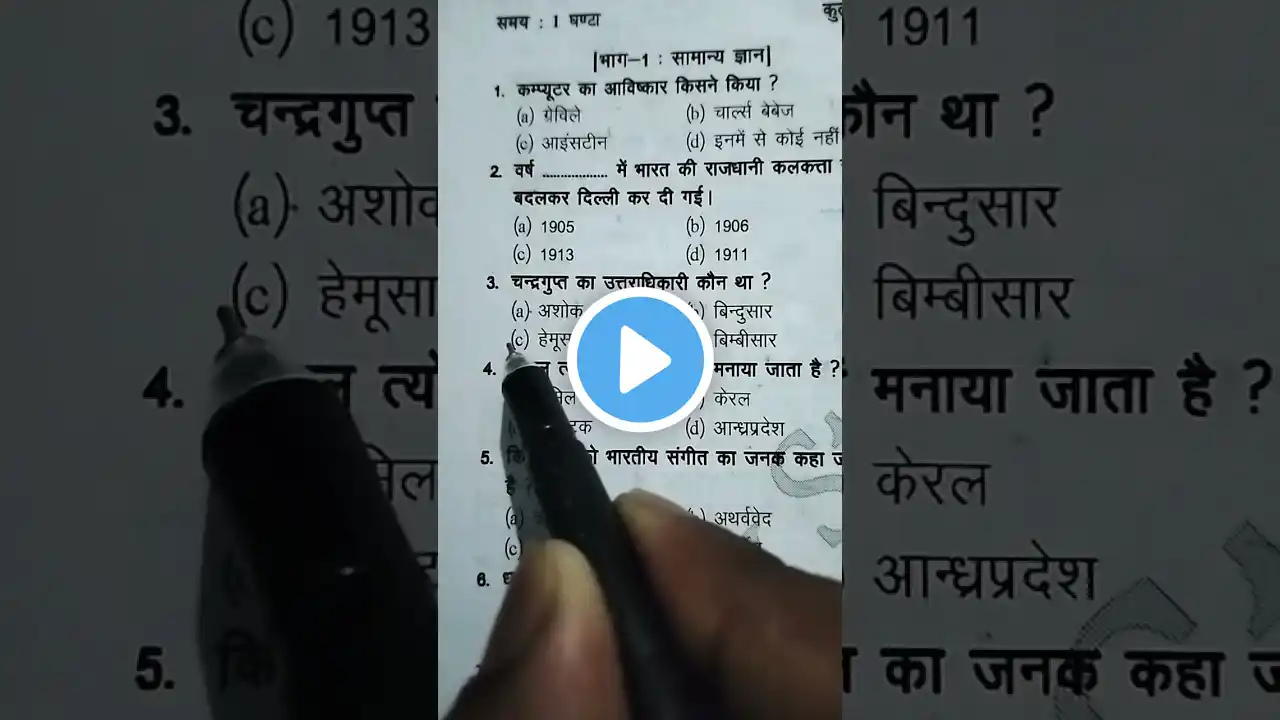 समय : 1 घण्टा
|भाग-1 : सामान्य ज्ञान|
1. कम्प्यूटर का आविष्कार किसने किया ?
(a) ग्रेविले (b) चार्ल्स बेबेज
(c) आइंसटीन (d) इनमें से कोई नहीं
2. वर्ष .................. में भारत की राजधानी कलकत्ता
बदलकर दिल्ली कर दी गई।
(a) 1905 (b) 1906
(c) 1913 (d) 1911
3. चन्द्रगुप्त का उत्तराधिकारी कौन था ?
(a) अशोक (b) बिन्दुसार
(c) बिम्बीसार
4. मनाया जाता है ?
केरल
(d) आन्ध्रप्रदेश
5. भारतीय संगीत का जनक कहा
है ?
(a) अथर्ववेद
(c)
6.
(c) 1913 1911
3. चन्द्रगुप्त कौन था ?
(a) बिन्दुसार
(c) बिम्बीसार
4. मनाया जाता है ?
केरल
आन्ध्रप्रदेश
5. का जनक कहा